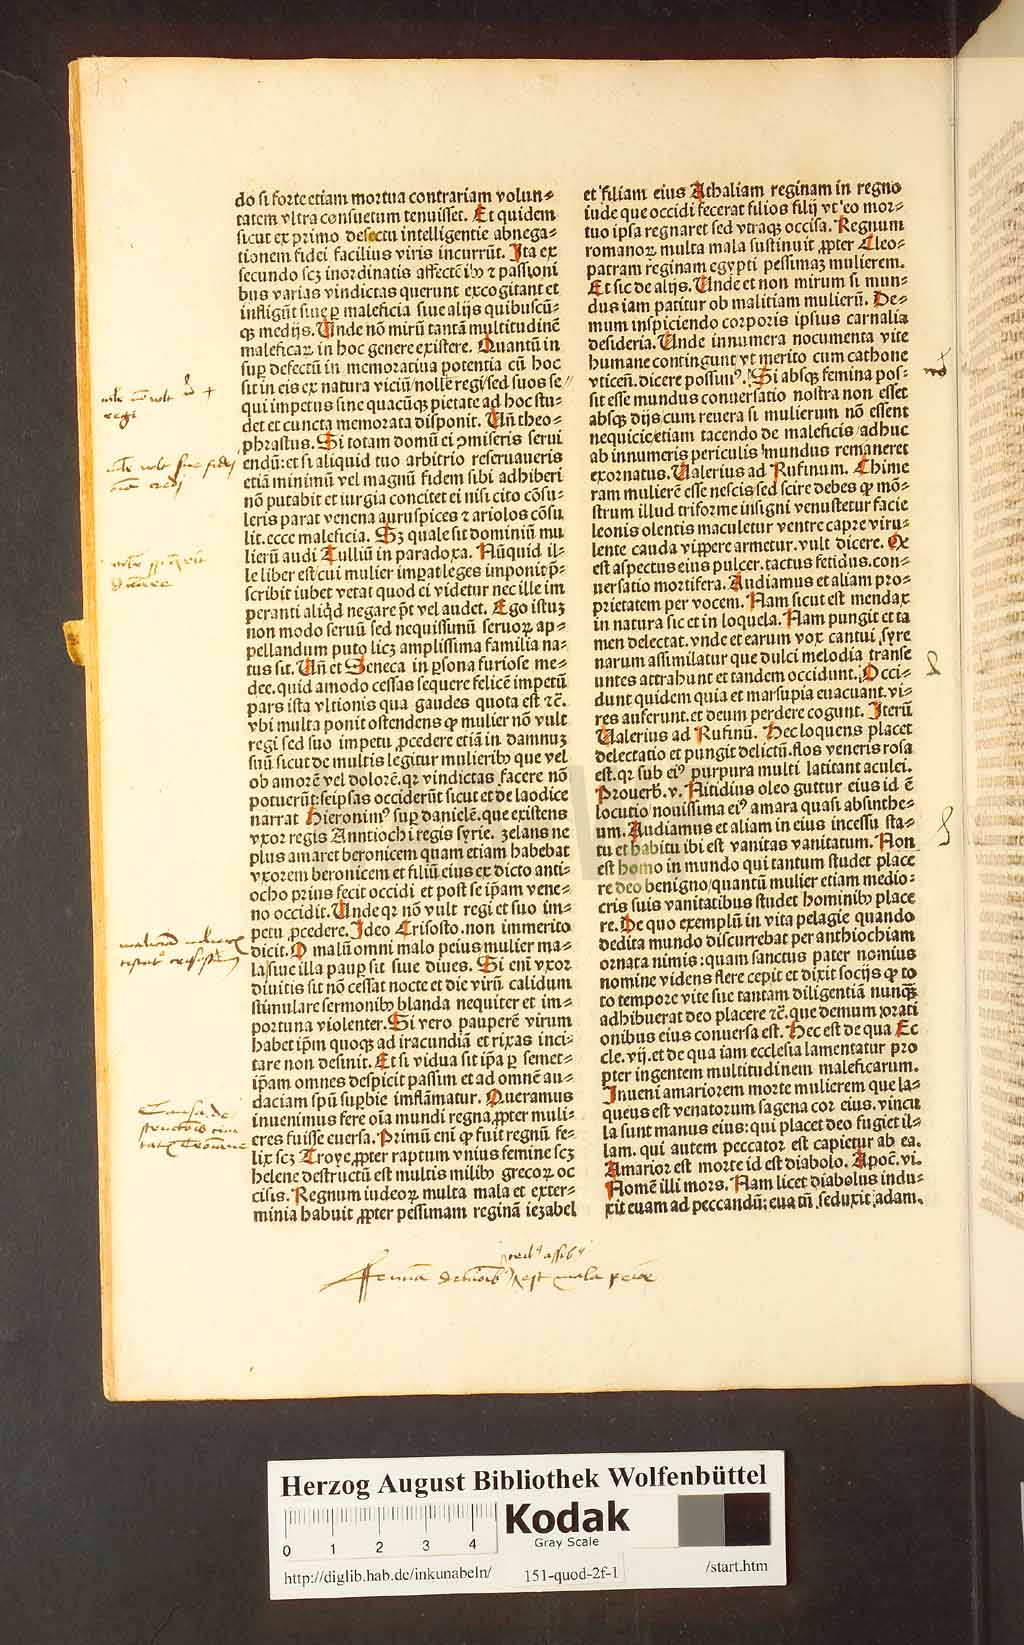 do si forte etiam mortua contrariam volun⸗
tatem vltra consuetum tenuisset. Et quidem
sicut ex primo defectu intelligentie abnega⸗
tionem fidei facilius viris incurrūt. Ita ex
secundo scʒ inordinatis affectēibꝰ ⁊ passioni
bus varias vindictas querunt excogitant et
infligūt siue ꝑ maleficia siue alijs quibuscū⸗
qʒ medijs. Unde non mirū tantā multitudinē
maleficaꝝ in hoc genere existere. Quantū in
suꝑ defectū in memoratiua potentia cū hoc
sit in eis ex natura viciū/nolle regi/sed suos se//
qui impetus sine quacūqʒ pietate ad hoc stu⸗
det et cuncta memorata disponit. Uñ theo⸗
phrastus. Si totam domū ei ↄmiseris serui
endū: et si aliquid tuo arbitrio reseruaueris
etiā minimū vel magnū fidem sibi adhiberi
nō putabit et iurgia concitet ei nisi cito cōsu⸗
leris parat venena auruspices ⁊ ariolos cōsu
lit. ecce maleficia. Sʒ quale sit dominiū mu
lierū audi Tulliū in paradoxa. Nūquid il⸗
le liber est/cui mulier imꝑat leges imponit p̄⸗
scribit iubet vetat quod ei videtur nec ille im
peranti aliqd negare p̄t vel audet. Ego istuʒ
non modo seruū sed nequissimū seruoꝝ ap⸗
pellandum puto licʒ amplissima familia na⸗
tus sit. Uñ et Seneca in ꝑsona furiose me⸗
dee. quid amodo cessas sequere felicē impetū
pars ista vltionis qua gaudes quota est ⁊c̄.
vbi multa ponit ostendens ꝙ mulier nō vult
regi sed suo impetu ꝓcedere etiā in damnuʒ
suū sicut de multis legitur mulieribꝰ que vel
ob amorē vel dolorē. qꝛ vindictas facere nō
potuerūt: seipsas occiderūt sicut et de laodice
narrat Hieronimꝰ suꝑ danielē. que existens
vxor regis Anntiochi regis syrie. zelans ne
plus amaret beronicem quam etiam habebat
vxorem beronicem et filiū eius ex dicto anti⸗
ocho prius fecit occidi et post se ip̄am vene⸗
no occidit. Unde qꝛ nō vult regi et suo im⸗
petu ꝓcedere. Ideo Crisosto. non immerito
dicit. O malū omni malo peius mulier ma⸗
la/siue illa pauꝑ sit siue diues. Si enī vxor
diuitis sit nō cessat nocte et die virū calidum
stimulare sermonibꝰ blanda nequiter et im⸗
portuna violenter. Si vero pauperē virum
habet ip̄m quoqʒ ad iracundiā et rixas inci⸗
tare non desinit. Et si vidua sit ip̄a ꝑ semet⸗
ip̄am omnes despicit passim et ad omnē au⸗
daciam spū suꝑbie inflāmatur. Queramus
inuenimus fere oīa mundi regna ꝓpter muli⸗
eres fuisse euersa. Primū enī ꝙ fuit regnū fe⸗
lix scʒ Troye ꝓpter raptum vnius femine scʒ
helene destructū est multis milibꝰ grecoꝝ oc
cisis. Regnum iudeoꝝ multa mala et exter⸗
minia habuit ꝓpter pessimam reginā iezabel
et filiam eius Athaliam reginam in regno
iude que occidi fecerat filios filij vt eo mor⸗
tuo ipsa regnaret sed vtraqʒ occisa. Regnum
romanoꝝ multa mala sustinuit ꝓpter Cleo⸗
patram reginam egypti pessimaʒ mulierem.
Et sic de alijs. Unde et non mirum si mun⸗
dus iam patitur ob malitiam mulierū. De⸗
mum inspiciendo corporis ipsius carnalia
desideria. Unde innumera nocumenta vite
humane contingunt vt merito cum cathone
vticeñ. dicere possimꝰ. Si absqʒ femina pos⸗
sit esse mundus conuersatio nostra non esset
absqʒ dijs cum reuera si mulierum nō essent
nequicie/etiam tacendo de maleficis/adhuc
ab innumeris periculis mundus remaneret
exornatus. Ualerius ad Rufinum. Chime
ram mulierē esse nescis sed scire debes ꝙ mō⸗
strum illud triforme insigni venustetur facie
leonis olentis maculetur ventre capre viru⸗
lente cauda vippere armetur. vult dicere. Qꝛ
est aspectus eius pulcer. tactus fetidus. con⸗
uersatio mortifera. Audiamus et aliam pro⸗
prietatem per vocem. Nam sicut est mendax
in natura sic et in loquela. Nam pungit et ta
men delectat. vnde et earum vox cantui syre
narum assimilatur que dulci melodia transe
untes attrahunt et tandem occidunt. Occi⸗
dunt quidem quia et marsupia euacuant. vi⸗
res auferunt. et deum perdere cogunt. Iterū
Ualerius ad Rufinū. Hec loquens placet
delectatio et pungit delictū. flos veneris rosa
est. qꝛ sub eiꝰ purpura multi latitant aculei.
Prouerb. v. Nitidius oleo guttur eius id ē
locutio/nouissima eiꝰ amara quasi absinthe⸗
um. Audiamus et aliam in eius incessu sta⸗
tu et habitu ibi est vanitas vanitatum. Non
est homo in mundo qui tantum studet place
re deo benigno/quantū mulier etiam medio⸗
cris suis vanitatibus studet hominibꝰ place
re. De quo exemplū in vita pelagie quando
dedita mundo discurrebat per anthiochiam
ornata nimis: quam sanctus pater nonius
nomine videns flere cepit et dixit socijs ꝙ to
to tempore vite sue tantam diligentiā nunqʒ
adhibuerat deo placere ⁊c̄. que demum orati
onibus eius conuersa est. Hec est de qua Ec
cle. vij. et de qua iam ecclesia lamentatur pro
pter ingentem multitudinem maleficarum.
Inueni amariorem morte mulierem que la⸗
queus est venatorum sagena cor eius. vincu
la sunt manus eius: qui placet deo fugiet il⸗
lam. qui autem peccator est capietur ab ea.
Amarior est morte id est diabolo. Apoc̄. vi.
Nomē illi mors. Nam licet diabolus indu⸗
xit euam ad peccandū: eua tñ seduxit adam.
Herzog August Bibliothek Wolfenbüttel
0 1 2 3 4
Kodak
Gray Scale
http://diglib.hab.de/inkunabeln/ 151-quod-2f-1 /start.htm